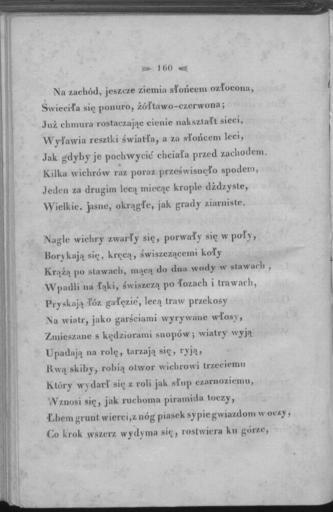 160
Na zachód, jeszcze ziemia słońcem ozłocona,
Świeciła się ponuro, żółtawo-czerwona;
Już chmura rostaczając cienie nakształt sieci,
Wyławia resztki światła, a za słońcem leci,
Jak gdyby je pochwycić chciała przed zachodem.
Kilka wichrów raz poraz prześwisnęło spodem,
Jeden za drugim lecą miecąc krople dżdżyste,
Wielkie, jasne, okrągłe, jak grady ziarniste.
Nagle wichry zwarły się, porwały się w poły,
Borykają się, kręcą, świszczącemi koły
Krążą po stawach, mącą do dna wody w stawach,
Wpadli na łąki, świszczą po łozach i trawach,
Pryskają łóz gałęzie, lecą traw przekosy
Na wiatr, jako garściami wyrywane włosy,
Zmieszane s kędziorami snopów; wiatry wyją
Upadają na rolę, tarzają się, ryją,
Rwą skiby, robią otwor wichrowi trzeciemu
Który wydarł się z roli jak słup czarnoziemu,
Wznosi się, jak ruchoma piramida toczy,
Łbem grunt wierci, z nóg piasek sypie gwiazdom w oczy,
Co krok wszerz wydyma się, rostwiera ku górze,